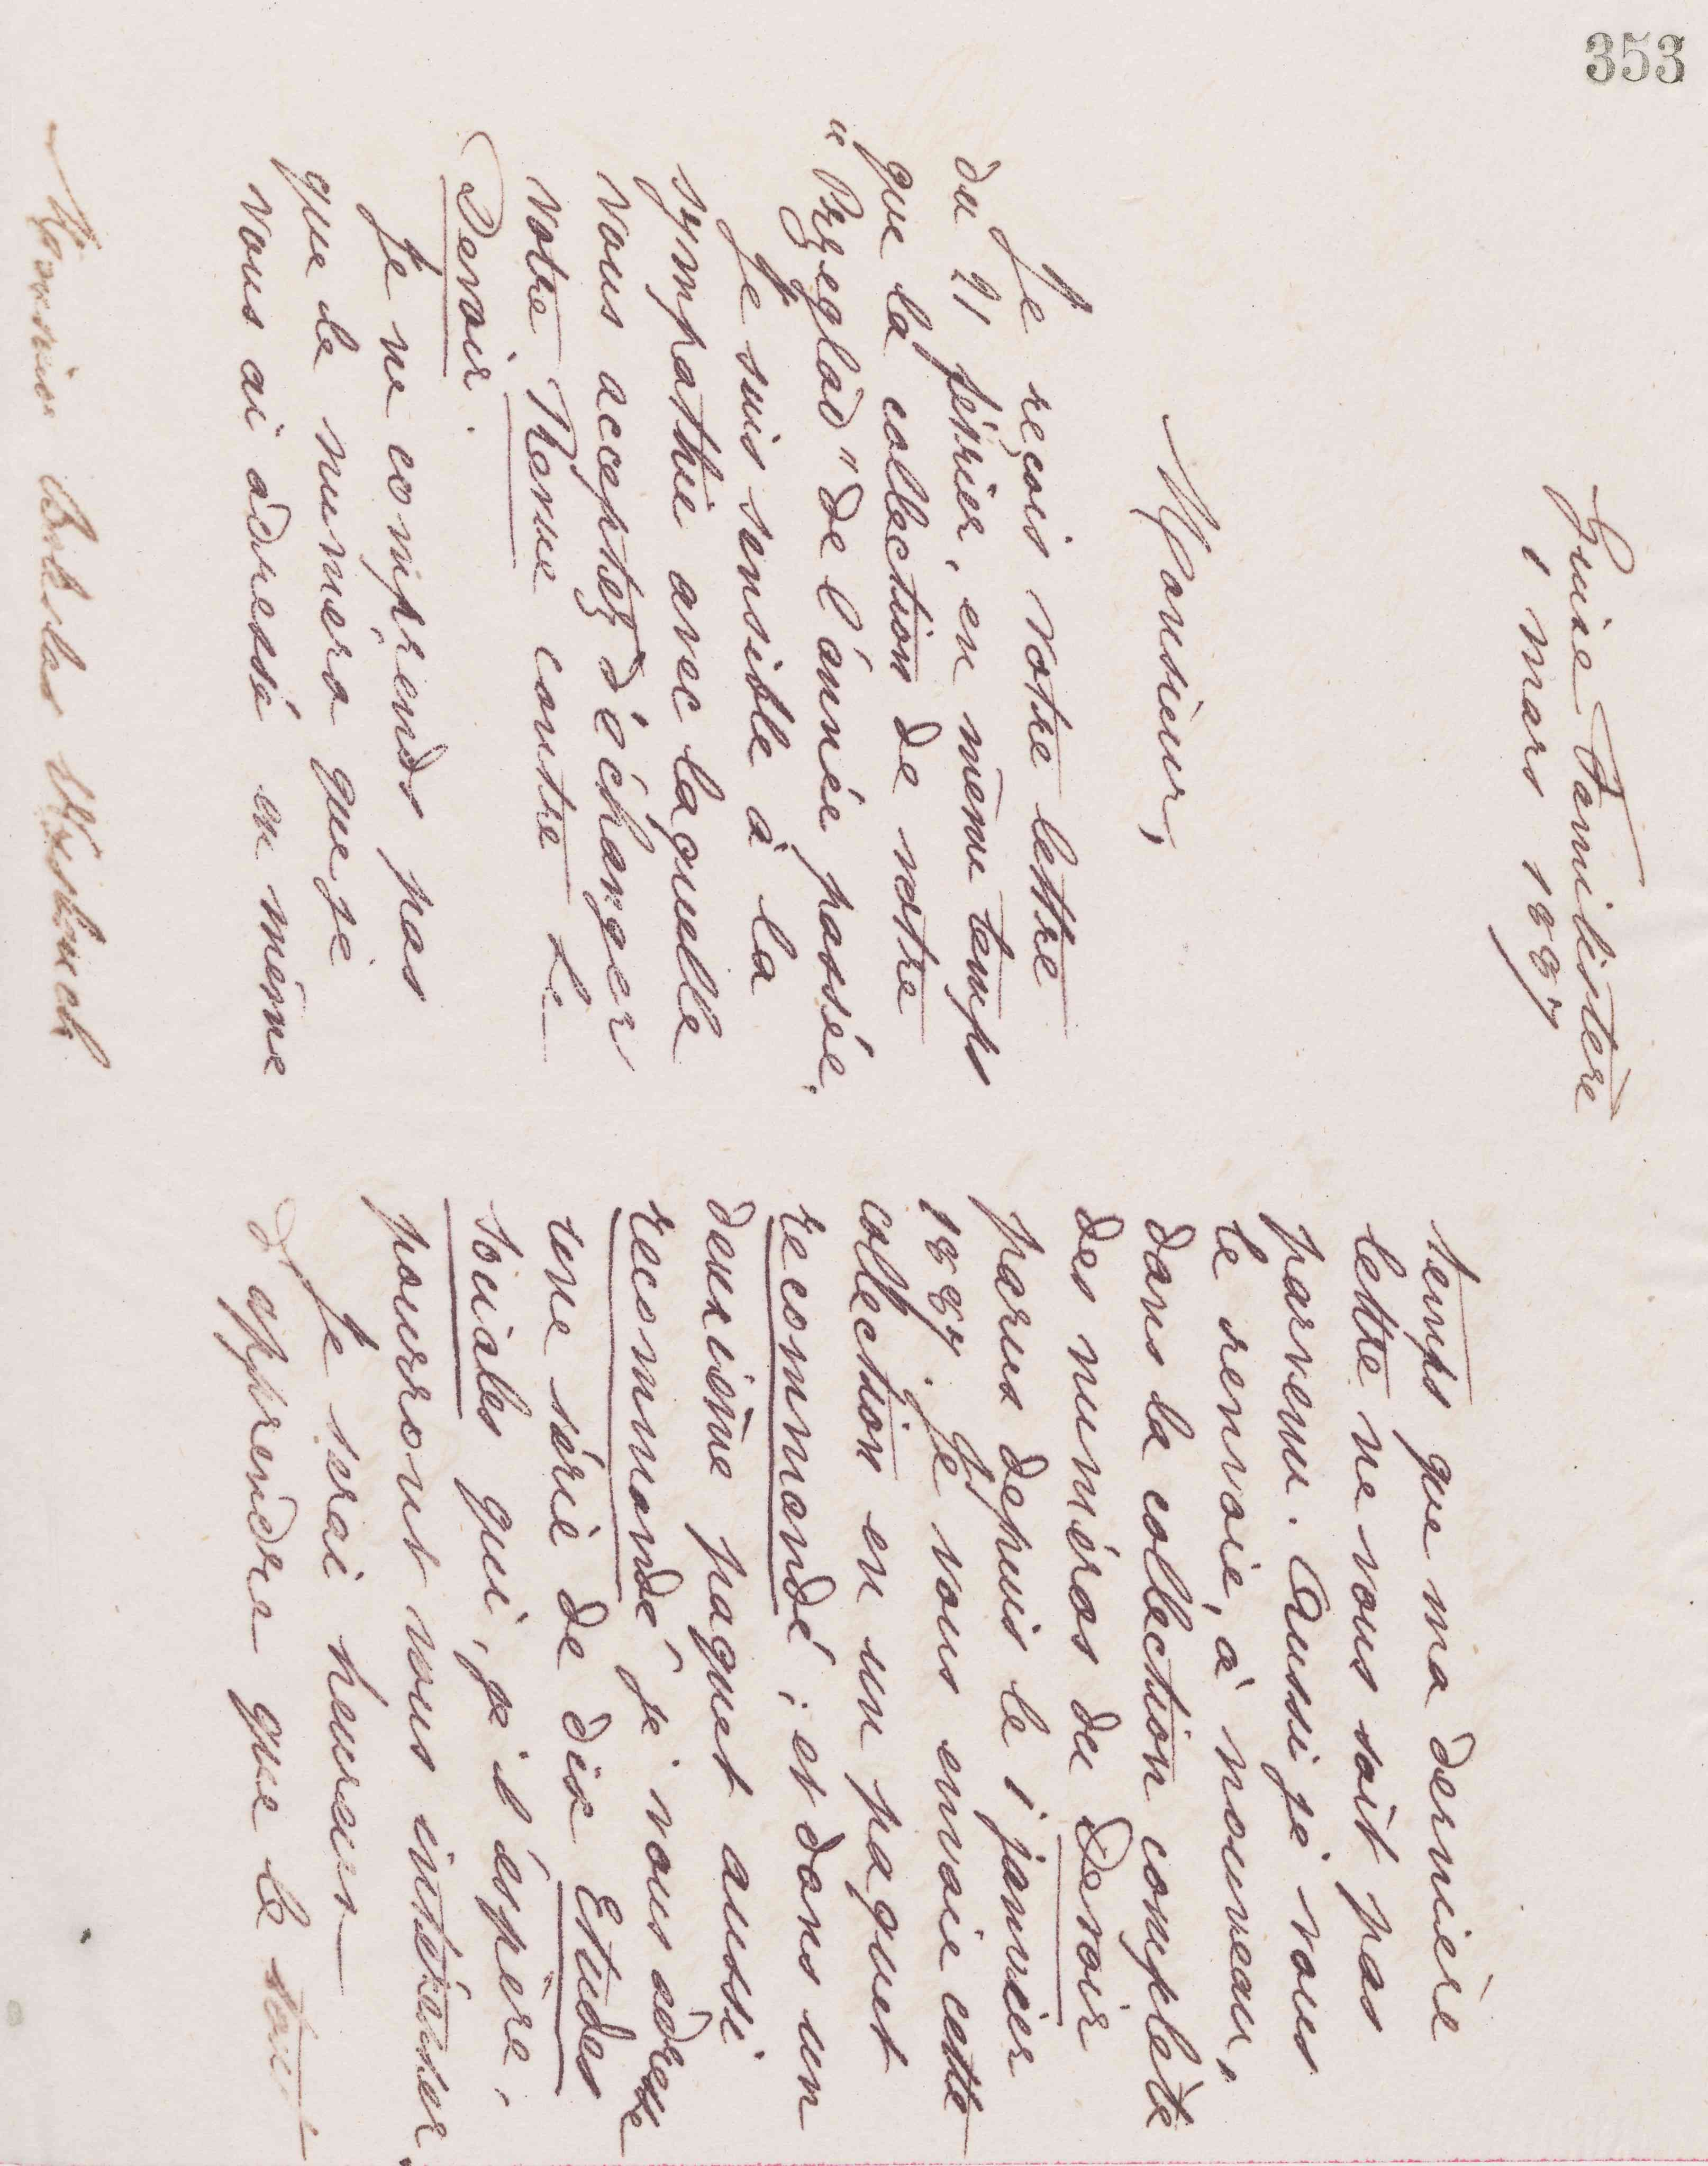 353
Guise Familistère
1 mars 1887
Monsieur,
Je reçois votre lettre
du 21 février, en même temps
que la collection de votre
"Przeglad" de l'année passée.
Je suis sensible à la
sympathie avec laquelle
vous acceptez d'échanger
votre Revue contre Le
Devoir.
Je ne comprends pas
que le numéro que je
vous ai adressé en même
Monsieur
temps que ma dernière
lettre ne vous soit pas
parvenu. Aussi je vous
le renvoie, à nouveau,
dans la collection complète
des numéros du Devoir
parus depuis le 1 janvier
1887. Je vous envoie cette
collection en un paquet
recommandé ; et dans un
deuxième paquet aussi
recommandé je vous adresse
une série de dix Etudes
sociales qui, je l'espère,
pourront vous intéresser.
Je serai heureux
d'apprendre que le tout